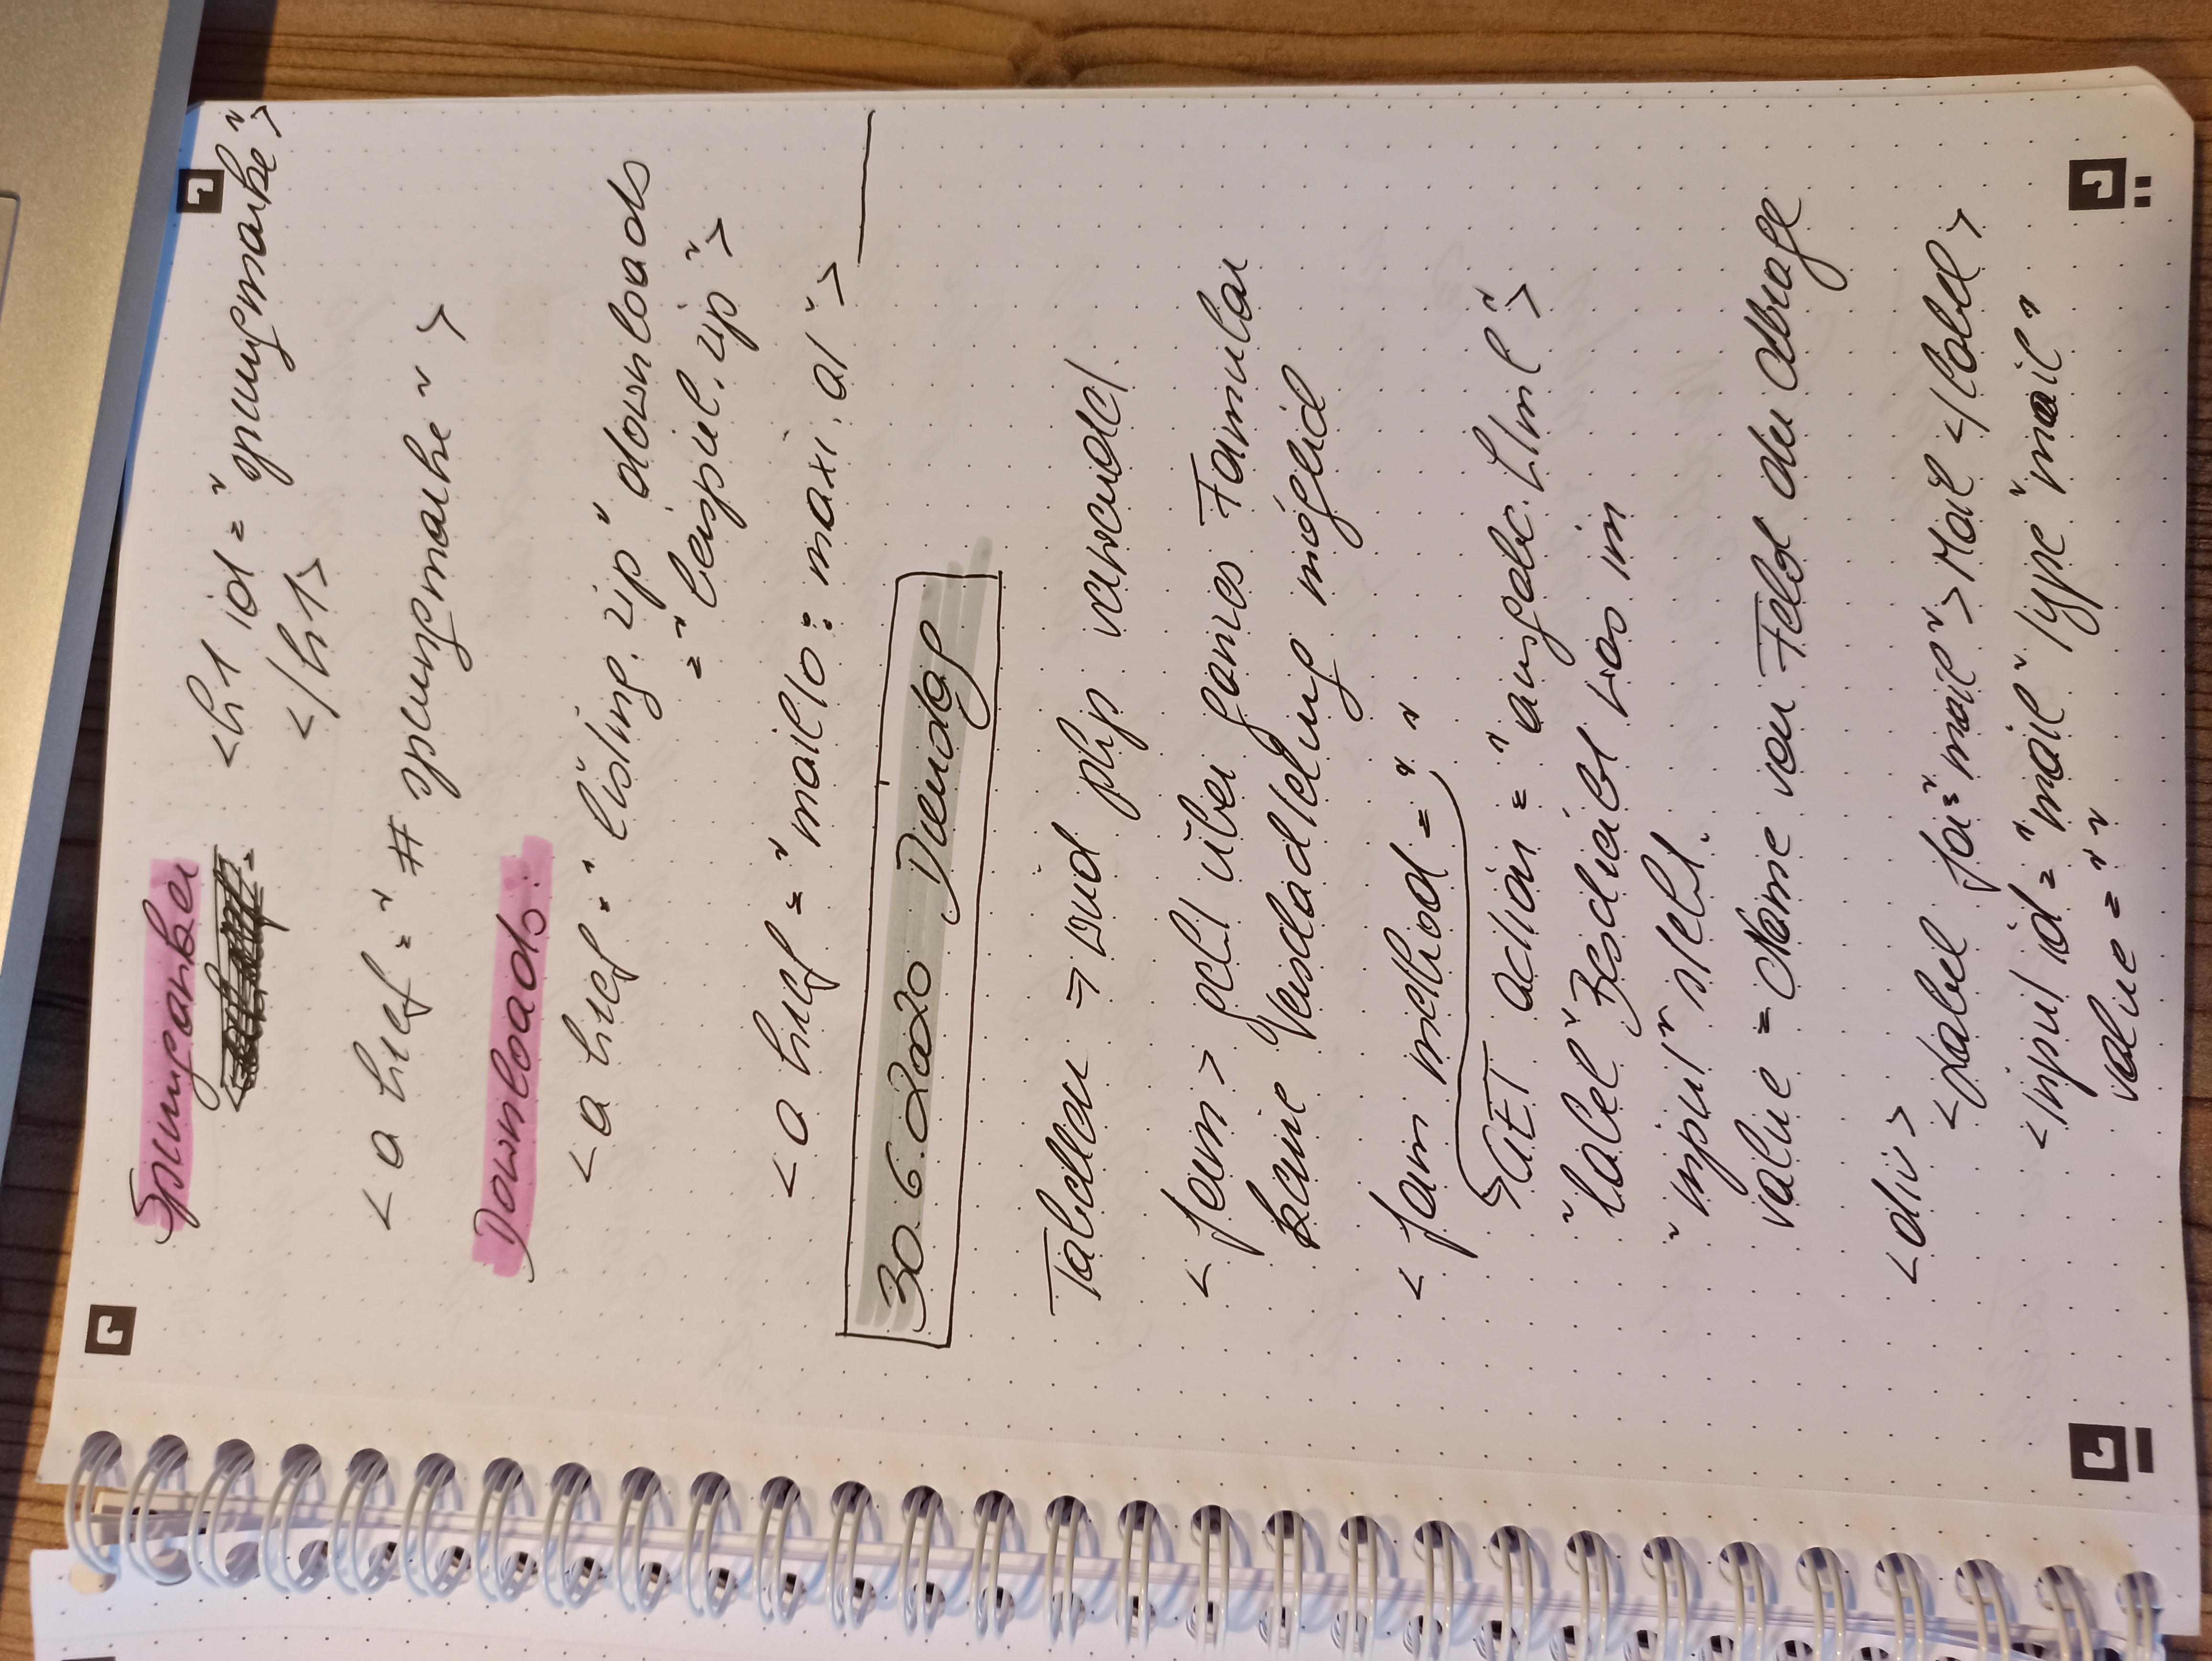 Sprunganker
<h1 id="sprungmarke">
</h1>
<a href="#sprungmarke">
Downloads:
<a href="listing.zip" downloads
="beispiel.zip">
<a href="mailto: maxi.at">
30.6.2020 Dienstag
Tabellen → wird php verwendet.
<form> geht über ganzes Formular
keine Verschachtelung möglich
<form method=" "
GET action="ausgabe.html">
"label" Beschreibt was in
"input" steht.
value = Name von Feld der Abfrage
<div>
<Label for="mail">Mail</label>
<input id="mail" type"mail"
value=""